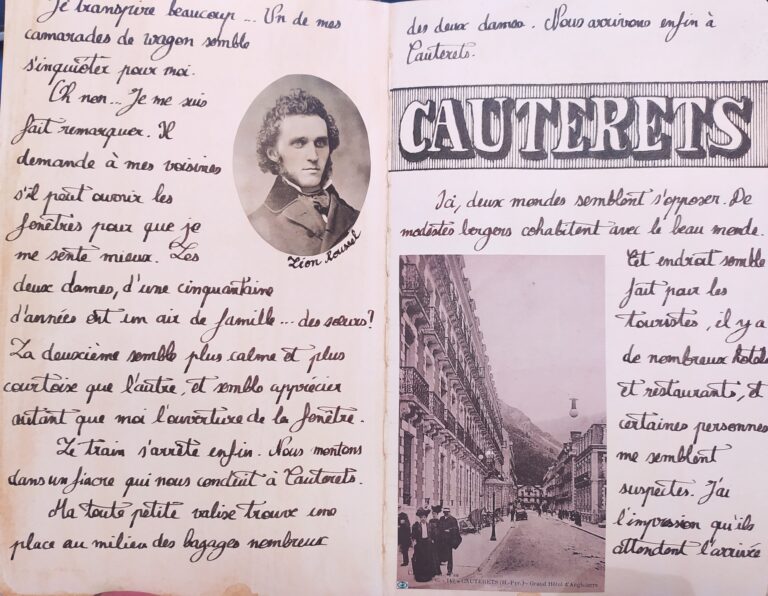 Je transpire beaucoup ... Un de mes
camarades de wagon semble
s'inquiéter pour moi.
Oh non... Je me suis
fait remarquer. Il
demande à mes voisines
s'il peut ouvrir les
fenêtres pour que je
me sente mieux. Les
deux dames, d'une cinquantaine
d'années ont un air de famille ... des sœurs?
La deuxième semble plus calme et plus
courtoise que l'autre, et semble apprécier
autant que moi l'ouverture de la fenêtre.
Le train s'arrête enfin. Nous montons
dans un fiacre qui nous conduit à Cauterets.
Ma toute petite valise trouve une
place au milieu des bagages nombreux
Léon
des deux dames. Nous arrivons enfin à
Cauterets.
CAUTERETS
Ici, deux mondes semblent s'opposer. De
modestes bergers cohabitent avec le beau monde.
Cet endroit semble
fait pour les
touristes, il y a
de nombreux hotels
et restaurants, et
certaines personnes
me semblent
suspectes. J'ai
l'impression qu'ils
attendent l'arrivée
CAUTERETS (H.-Pyr.) - Grand Hôtel d'Angleterre